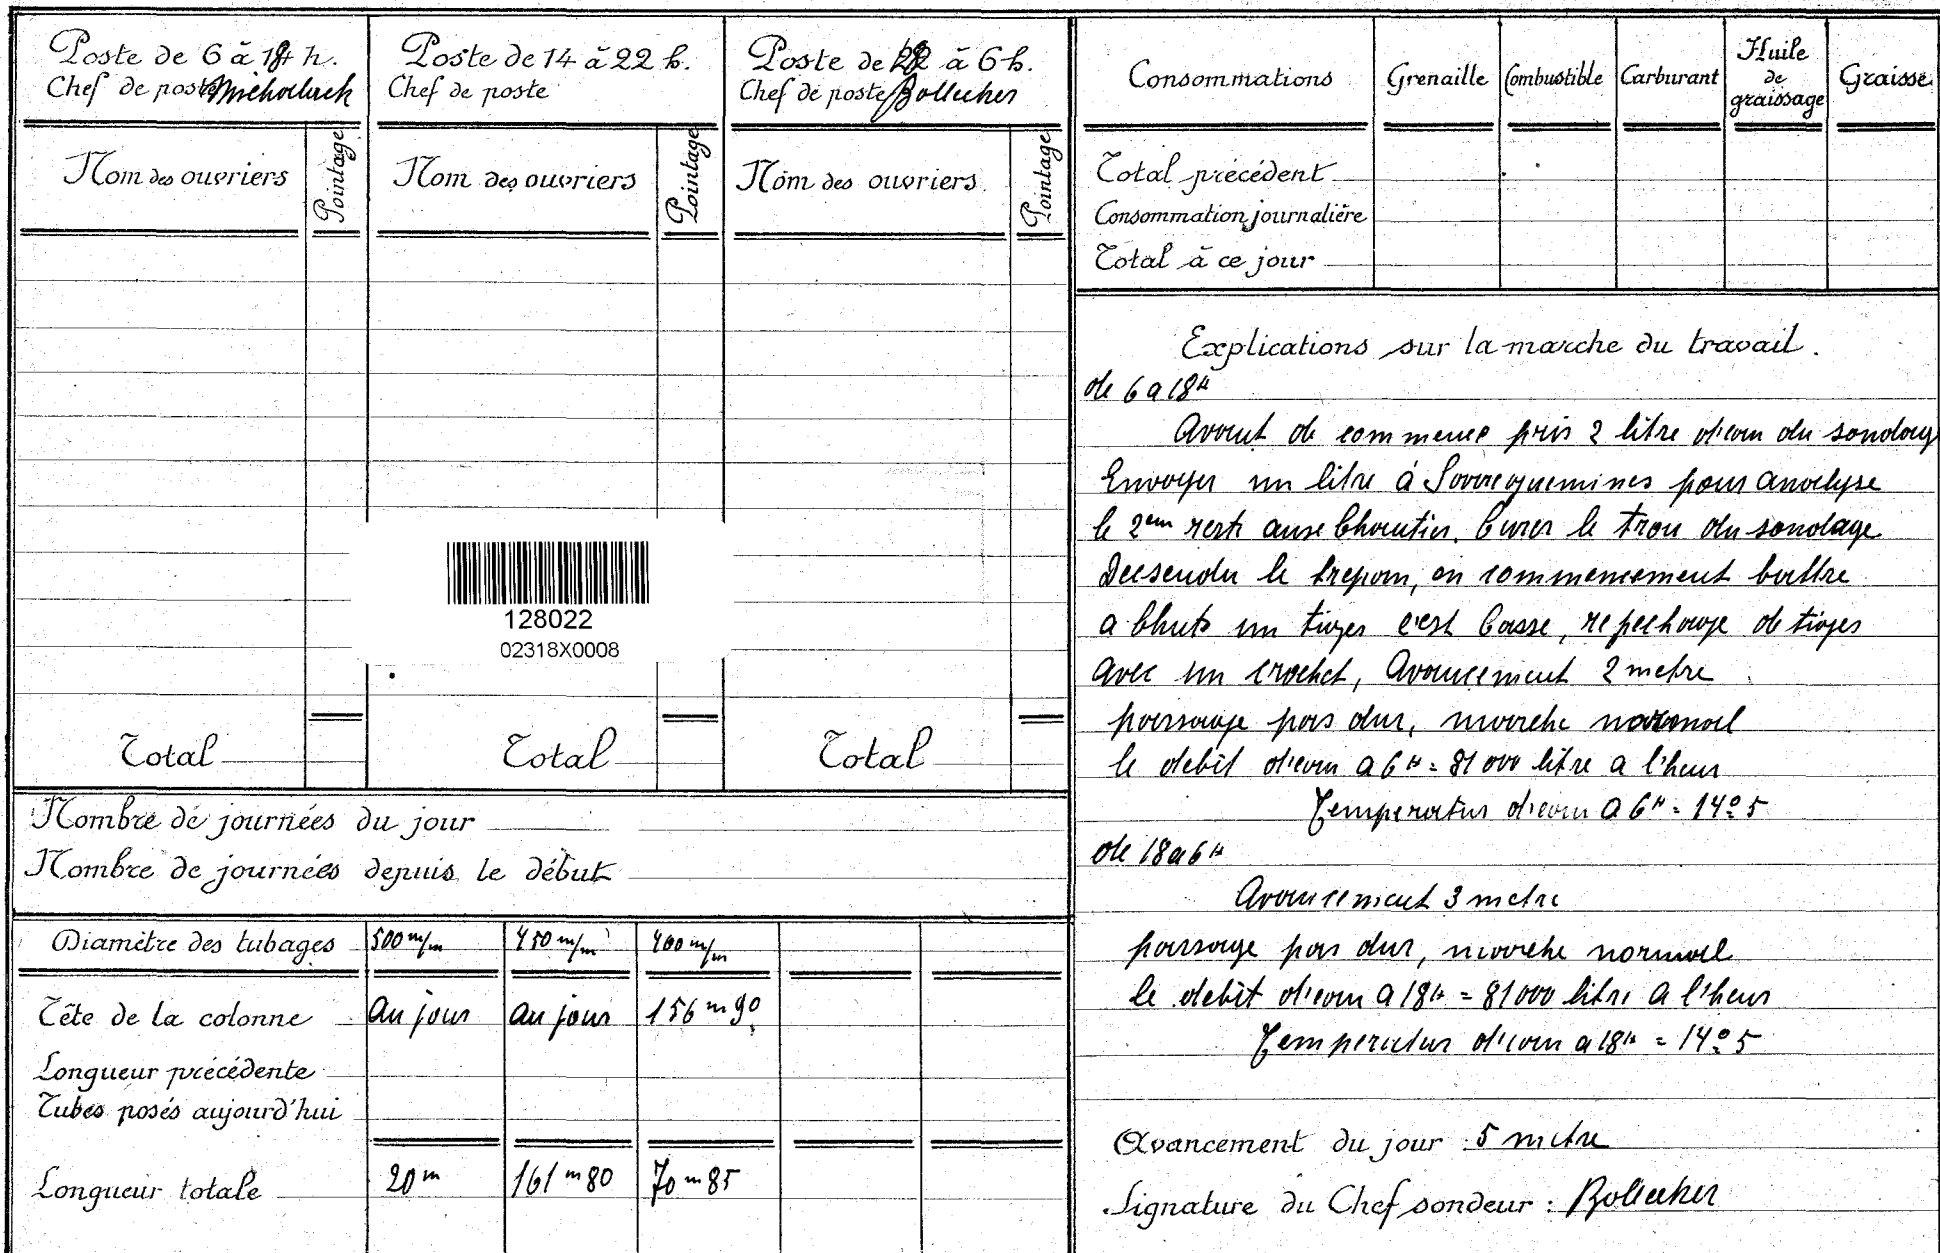 Poste de 6 à 18 h.
Chef de poste
Nom des ouvriers
Pointage
Total
Poste de 14 à 22 h.
Chef de poste
Nom des ouvriers
Pointage
Total
Poste de 18 à 6 h.
Chef de poste Bollecker
Nom des ouvriers
Pointage
Total
128022
02318X0008
Nombre de journées du jour
Nombre de journées depuis le début
Diamètre des tubages 500 m/m 450 m/m 400 m/m
Tête de la colonne au jour au jour 156 m 90
Longueur précédente
Tubes posés aujourd'hui
Longueur totale 20 m 161 m 80 70 m 85
Consommations Grenaille Combustible Carburant Huile de graissage Graisse
Total précédent
Consommation journalière
Total à ce jour
Explications sur la marche du travail.
de 6 a 18 H
Avant de commence pris 2 litre d'eau du sondag
Envoyer un litre à Sarreguemines pour analyse
le 2em reste ause Chantier. Curer le trou du sondage
Descendu le trepan, en commencement battre
a Chute un tiges c'est Casse, repechage de tiges
avec un crochet, Avancement 2 metre
passage pas dur, marche normal
le debit d'eau a 6 H = 81000 litre a l'heur
Temperatur d'eau a 6 H = 14° 5
de 18 a 6 H
Avancement 3 metre
passage pas dur, marche normal
le debit d'eau a 18 H = 81000 litre a l'heur
Temperatur d'eau a 18 H = 14° 5
Avancement du jour 5 metre
Signature du Chef sondeur : Bollecker